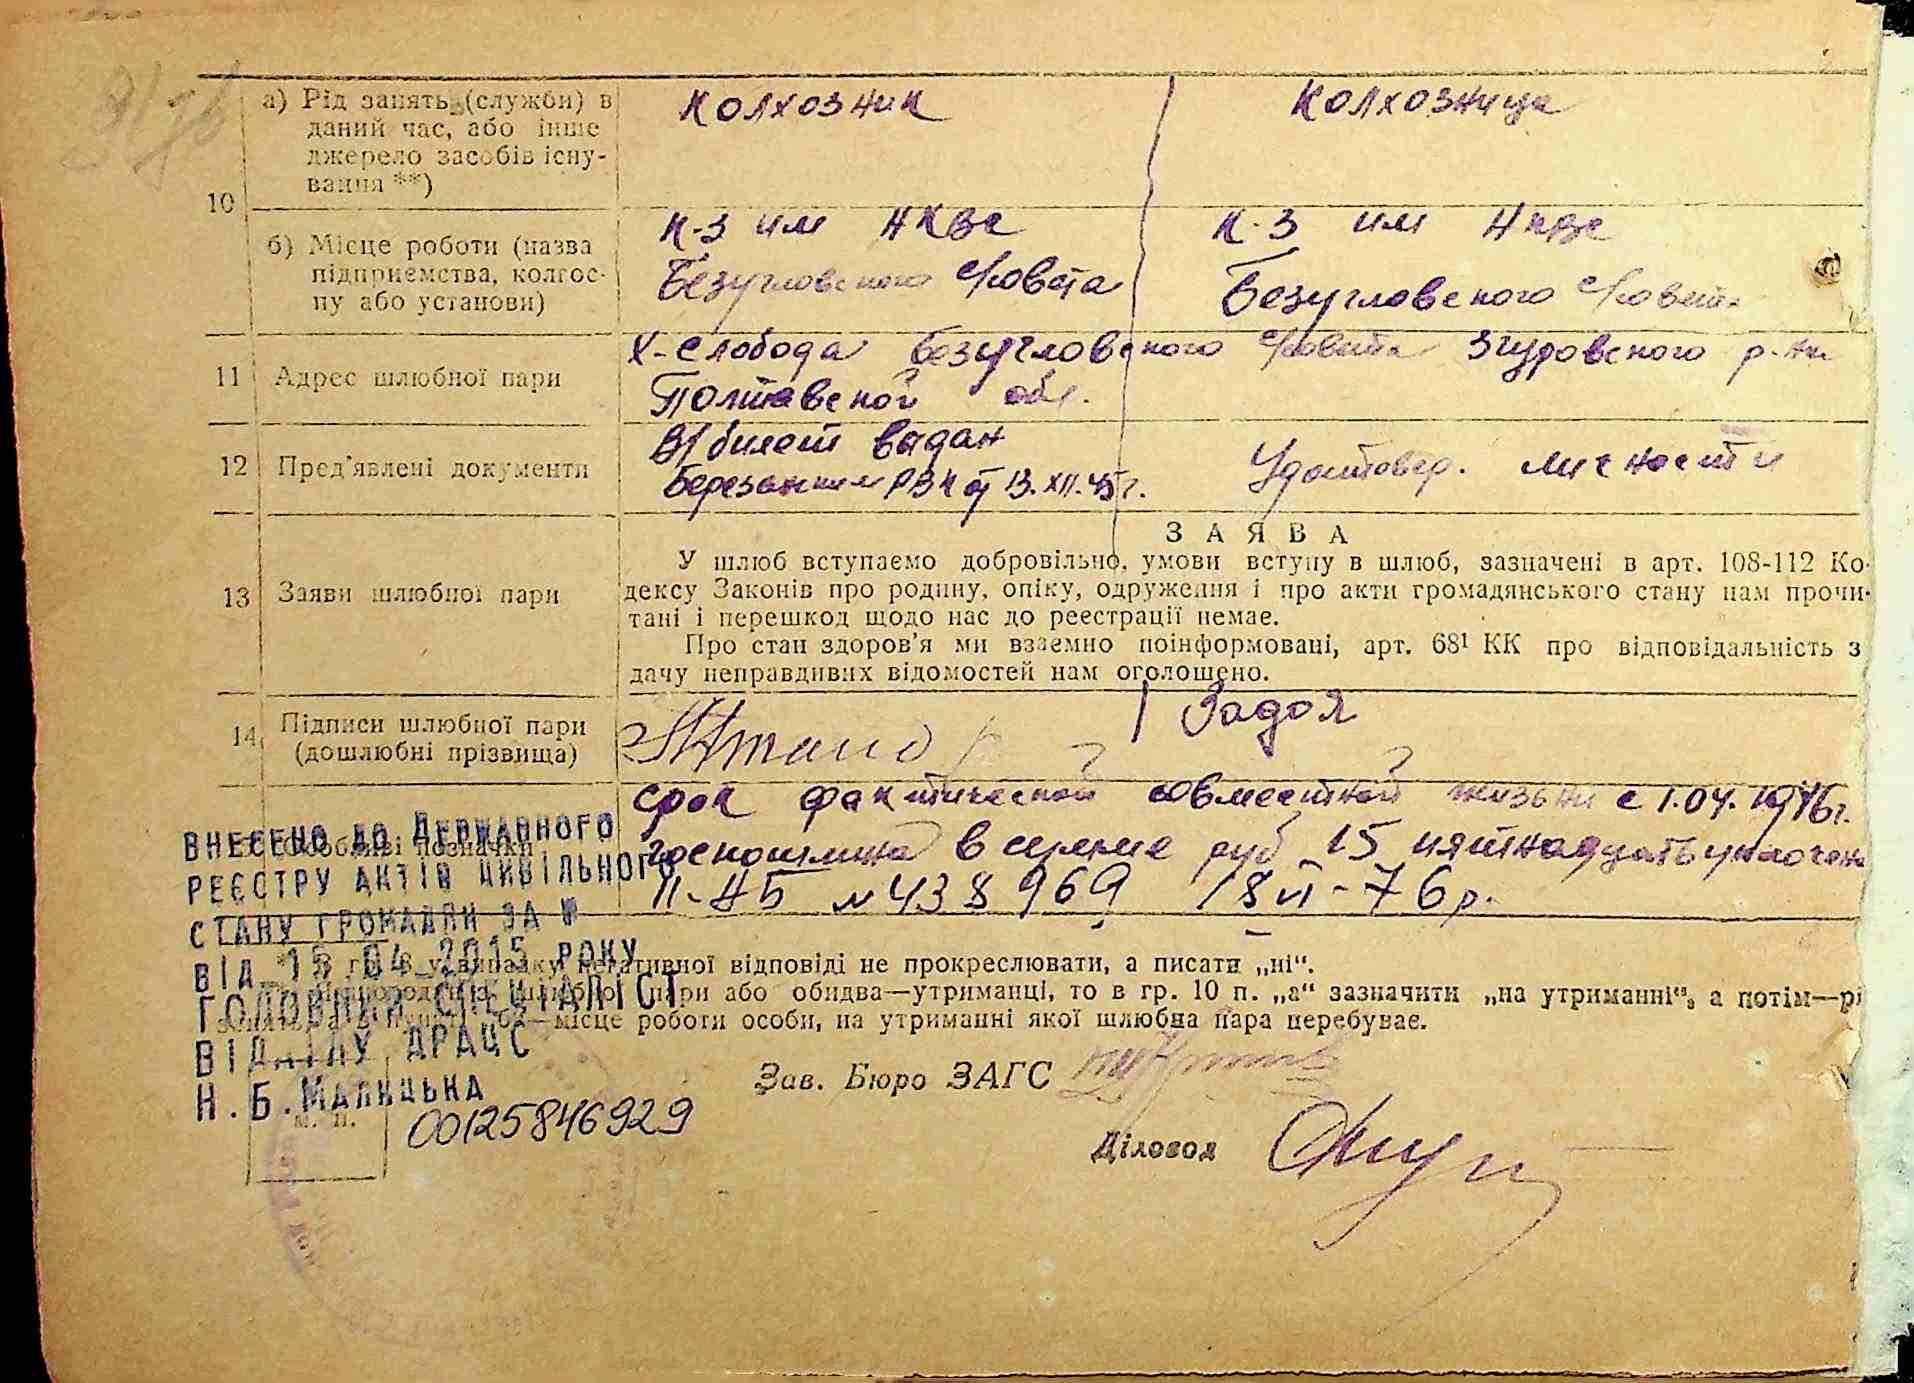 а) Рід занять (служби) в
даний час, або інше
джерело засобів існу-
вання **)
колхозник
колхозница
10
б) Місце роботи (назва
підприємства, колгос-
пу або установи)
к-з им НКВС
Безугловского с/совета
к-з им НКВС
Безугловского с/совета
11
Адрес шлюбної пари
х-слобода Безугловского с/совета Згуровского р-на
Полтавской обл.
12
Пред'явлені документи
В/билет видан
Березанким РВК от 13.XII.45 г.
Удостовер. личности
13
Заяви шлюбної пари
ЗАЯВА
У шлюб вступаємо добровільно, умови вступу в шлюб, зазначені в арт. 108-112 Ко-
дексу Законів про родину, опіку, одруження і про акти громадянського стану нам прочи-
тані і перешкод щодо нас до реєстрації немає.
Про стан здоров'я ми взаємно поінформовані, арт. 68¹ КК про відповідальність з
дачу неправдивих відомостей нам оголошено.
14
Підписи шлюбної пари
(дошлюбні прізвища)
Задоя
Особливі позначки
срок фактической совместной жизни с 1.04.1946 г.
госпошлина в сумме руб 15 пятнадцать уплочена
II-АБ № 438969 18 VI-76 р.
ВНЕСЕНО ДО ДЕРЖАВНОГО
РЕЄСТРУ АКТІВ ЦИВІЛЬНОГО
СТАНУ ГРОМАДЯН ЗА №
ВІД 15 04 2015 РОКУ
ГОЛОВНИЙ СПЕЦІАЛІСТ
ВІДДІЛУ ДРАЦС
Н.Б.МАЛИЦЬКА
00125846929
у випадку негативної відповіді не прокреслювати, а писати „ні“.
шлюбної пари або обидва—утриманці, то в гр. 10 п. „а“ зазначити „на утриманні“, а потім—рі
місце роботи особи, на утриманні якої шлюбна пара перебуває.
Зав. Бюро ЗАГС
м. п.
Діловод